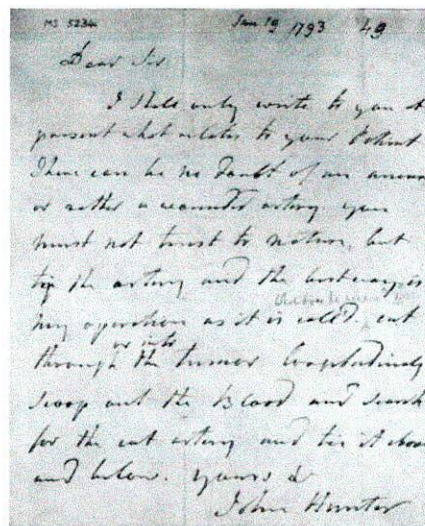 MS 5234 Jan 19 1793 49
Dear Sir
I shall only write to you at
present what relates to your Patient
There can be no Doubt of an aneu
or rather a wounded artery you
must not trust to nature, but
tie the artery and the best way is
my operation as it is called. cut
or into
through the tumor longitudinaly
scoop out the Blood and search
for the cut artery and tie it above
and below. yours &
John Hunter